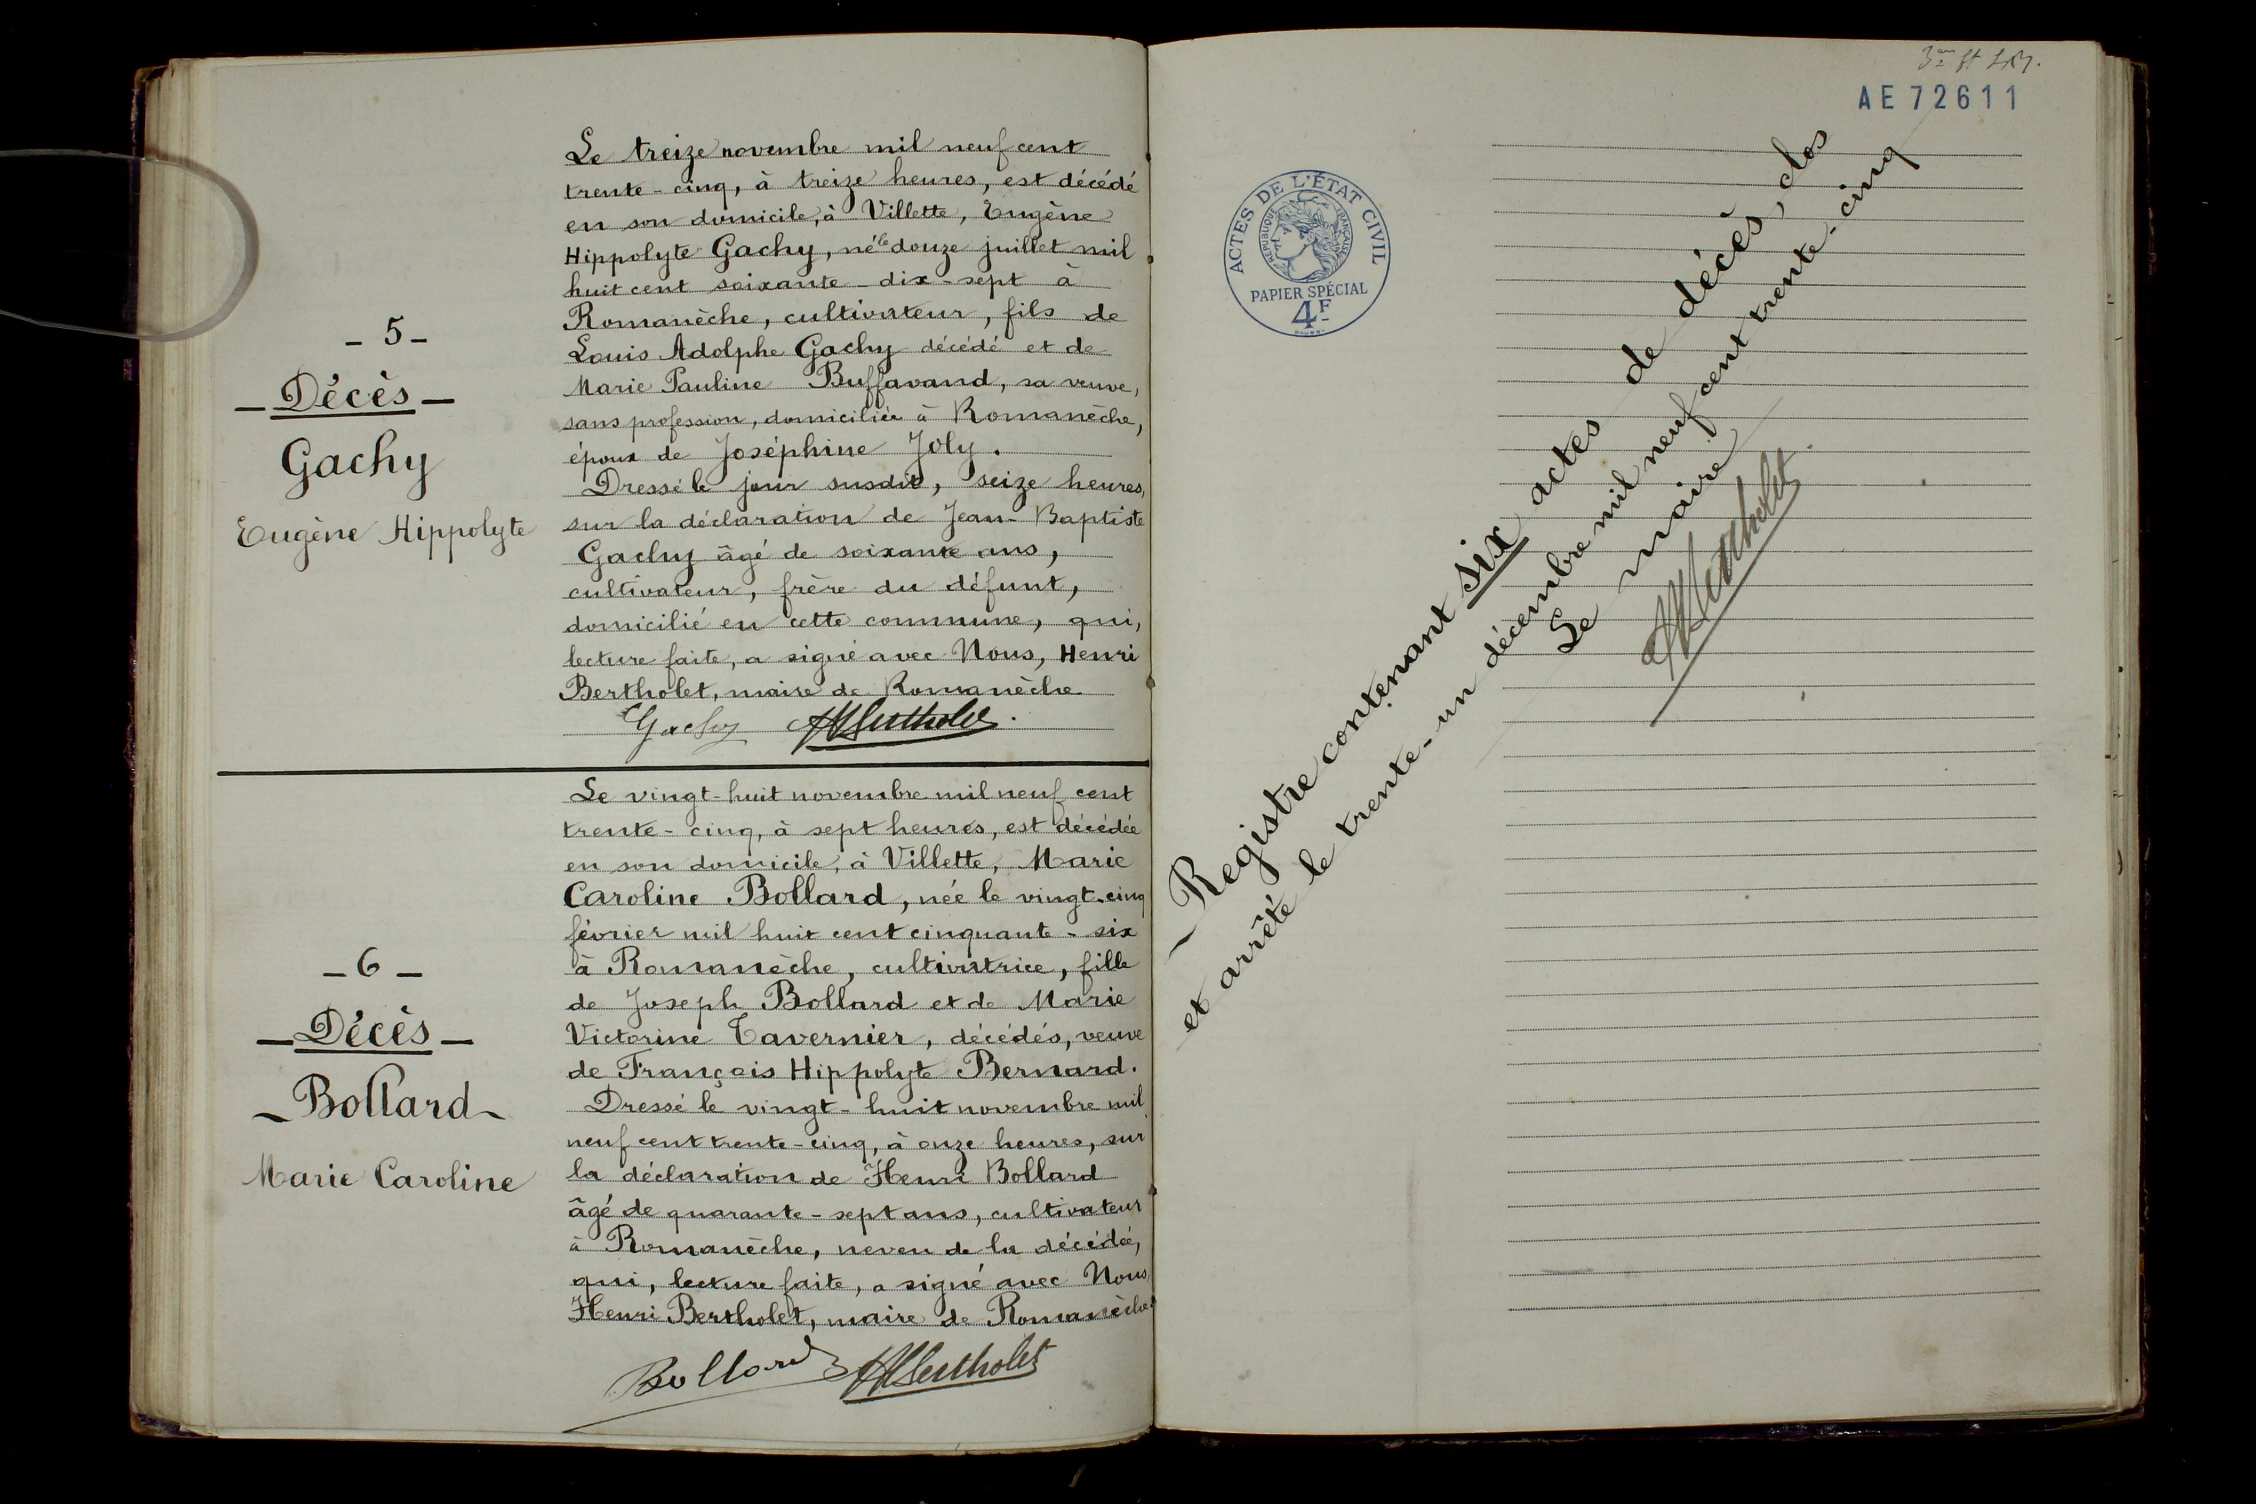 - 5 -
- Décès -
Gachy
Eugène Hippolyte
Le treize novembre mil neuf cent
trente-cinq, à treize heures, est décédé
en son domicile, à Villette, Eugène
Hippolyte Gachy, né le douze juillet mil
huit cent soixante-dix-sept à
Romanèche, cultivateur, fils de
Louis Adolphe Gachy décédé et de
Marie Pauline Buffavand, sa veuve,
sans profession, domiciliée à Romanèche,
époux de Joséphine Joly.
Dressé le jour susdit, seize heures,
sur la déclaration de Jean-Baptiste
Gachy âgé de soixante ans,
cultivateur, frère du défunt,
domicilié en cette commune, qui,
lecture faite, a signé avec Nous, Henri
Bertholet, maire de Romanèche
Gachy HBertholet.
- 6 -
- Décès -
- Bollard -
Marie Caroline
Le vingt-huit novembre mil neuf cent
trente-cinq, à sept heures, est décédée
en son domicile, à Villette, Marie
Caroline Bollard, née le vingt-cinq
février mil huit cent cinquante-six
à Romanèche, cultivatrice, fille
de Joseph Bollard et de Marie
Victorine Tavernier, décédés, veuve
de François Hippolyte Bernard.
Dressé le vingt-huit novembre mil
neuf cent trente-cinq, à onze heures, sur
la déclaration de Henri Bollard
âgé de quarante-sept ans, cultivateur
à Romanèche, neveu de la décédée,
qui, lecture faite, a signé avec Nous
Henri Bertholet, maire de Romanèche.
Bollard HBertholet
AE 72611
ACTES DE L'ÉTAT CIVIL
RÉPUBLIQUE FRANÇAISE
PAPIER SPÉCIAL
4F
- Registre contenant six actes de décès, clos
et arrêté le trente-un décembre mil neuf cent trente-cinq
Le maire
HBertholet.